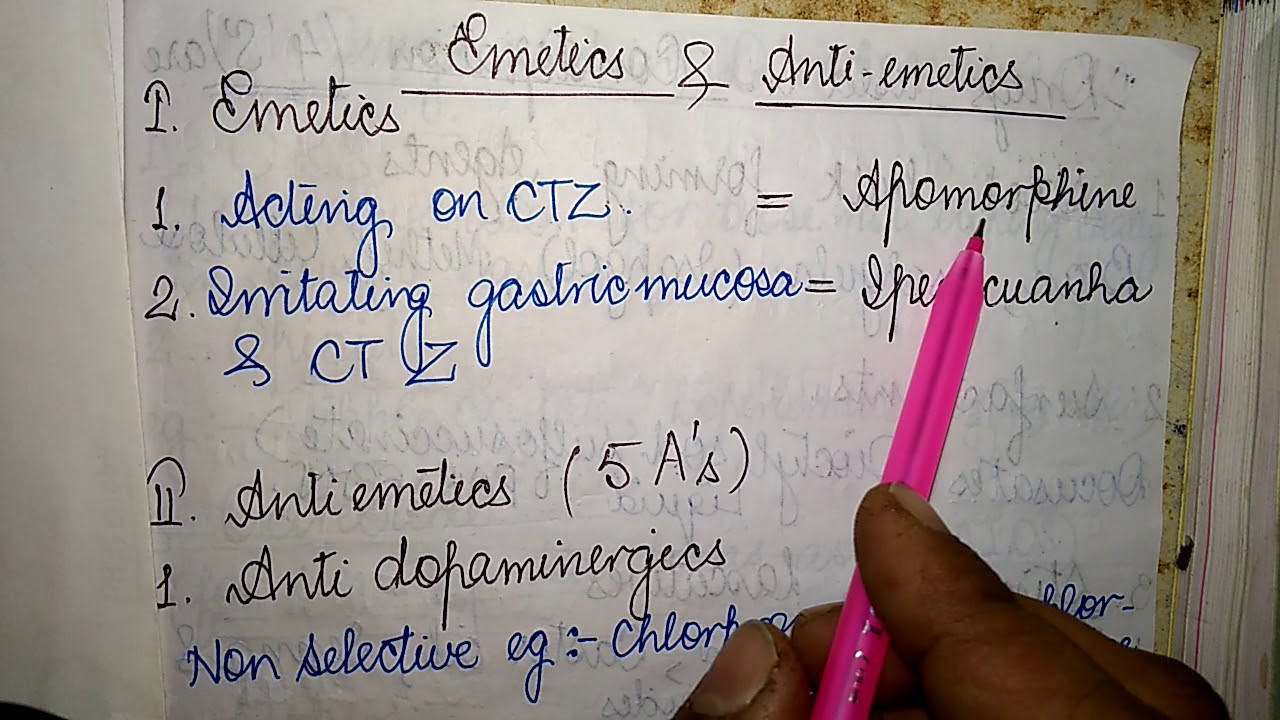 Emetics & Anti-emetics
I. Emetics
1. Acting on CTZ. = Apomorphine
2. Irritating gastric mucosa = Ipe cuanha
& CTZ
II. Antiemetics (5 A's)
1. Anti dopaminergecs
Non selective eg :-